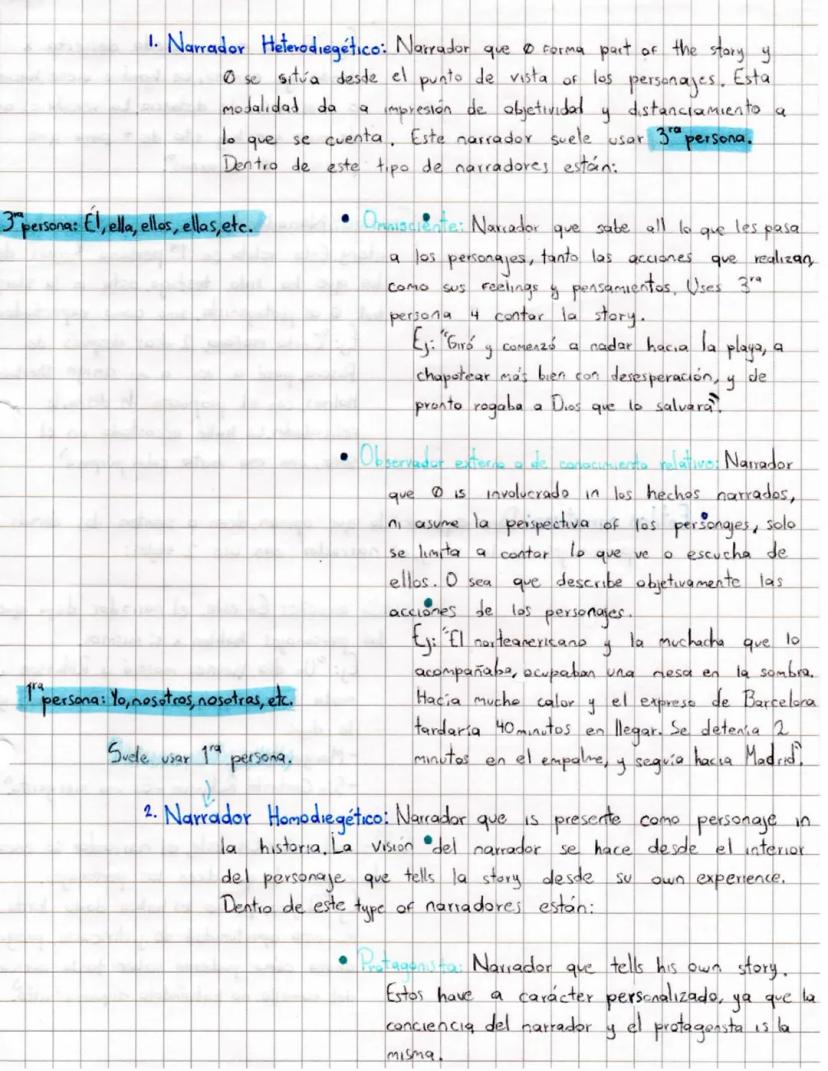 1. Narrador Heterodiegético: Narrador que Ø forma part of the story y
Ø se sitúa desde el punto de vista of los personajes. Esta
modalidad da a impresión de objetividad y distanciamiento a
lo que se cuenta. Este narrador suele usar 3ra persona.
Dentro de este tipo de narradores están:
3ra persona: Él, ella, ellos, ellas, etc.
• Omnisciente: Narrador que sabe all lo que les pasa
a los personajes, tanto las acciones que realizan
como sus feelings y pensamientos. Uses 3ra
persona 4 contar la story.
Ej: "Giró y comenzó a nadar hacia la playa, a
chapotear más bien con desesperación, y de
pronto rogaba a Dios que lo salvara".
• Observador externo o de conocimiento relativo: Narrador
que Ø is involucrado in los hechos narrados,
ni asume la perspectiva of los personajes, solo
se limita a contar lo que ve o escucha de
ellos. O sea que describe objetivamente las
acciones de los personajes.
Ej: "El norteamericano y la muchacha que lo
acompañaba, ocupaban una mesa en la sombra.
1ra persona: Yo, nosotros, nosotras, etc.
Hacía mucho calor y el expreso de Barcelona
tardaría 40 minutos en llegar. Se detenía 2
Suele usar 1ra persona.
minutos en el empalme, y seguía hacia Madrid".
2. Narrador Homodiegético: Narrador que is presente como personaje in
la historia. La visión del narrador se hace desde el interior
del personaje que tells la story desde su own experience.
Dentro de este type of narradores están:
• Protagonista: Narrador que tells his own story.
Estos have a carácter personalizado, ya que la
conciencia del narrador y el protagonsta is la
misma.